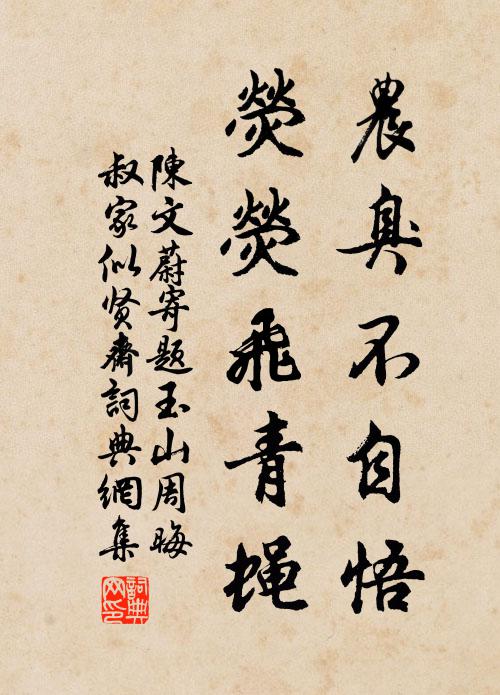 農臭不自悟
熒熒飛青蝇
陳文蔚寄題玉山周晦
叔家似贤齋詞典網集
詞典网印